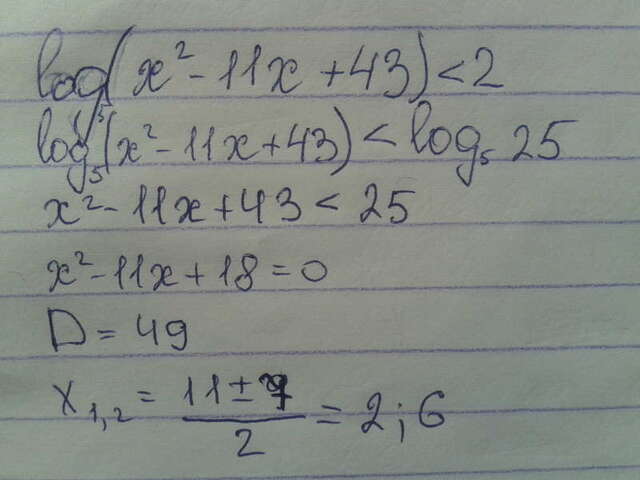 log₅(x² - 11x + 43) < 2
log₅(x² - 11x + 43) < log₅ 25
x² - 11x + 43 < 25
x² - 11x + 18 = 0
D = 49
x₁,₂ = (11 ± 7)/2 = 2; 6